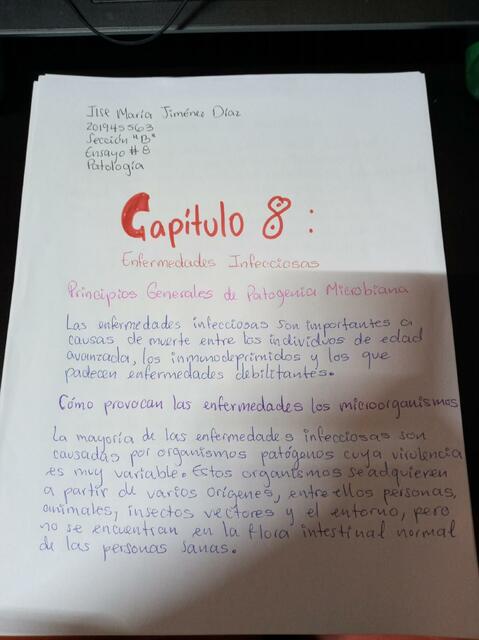 Ilse María Jiménez Díaz
201945563
Sección "B"
Ensayo #8
Patología
Capítulo 8:
Enfermedades Infecciosas
Principios Generales de Patogenia Microbiana
Las enfermedades infecciosas son importantes a
causas de muerte entre los individuos de edad
avanzada, los inmunodeprimidos y los que
padecen enfermedades debilitantes.
Cómo provocan las enfermedades los microorganismos
La mayoría de las enfermedades infecciosas son
causadas por organismos patógenos cuya virulencia
es muy variable. Estos organismos se adquieren
a partir de varios orígenes, entre ellos personas,
animales, insectos vectores y el entorno, pero
no se encuentran en la flora intestinal normal
de las personas sanas.